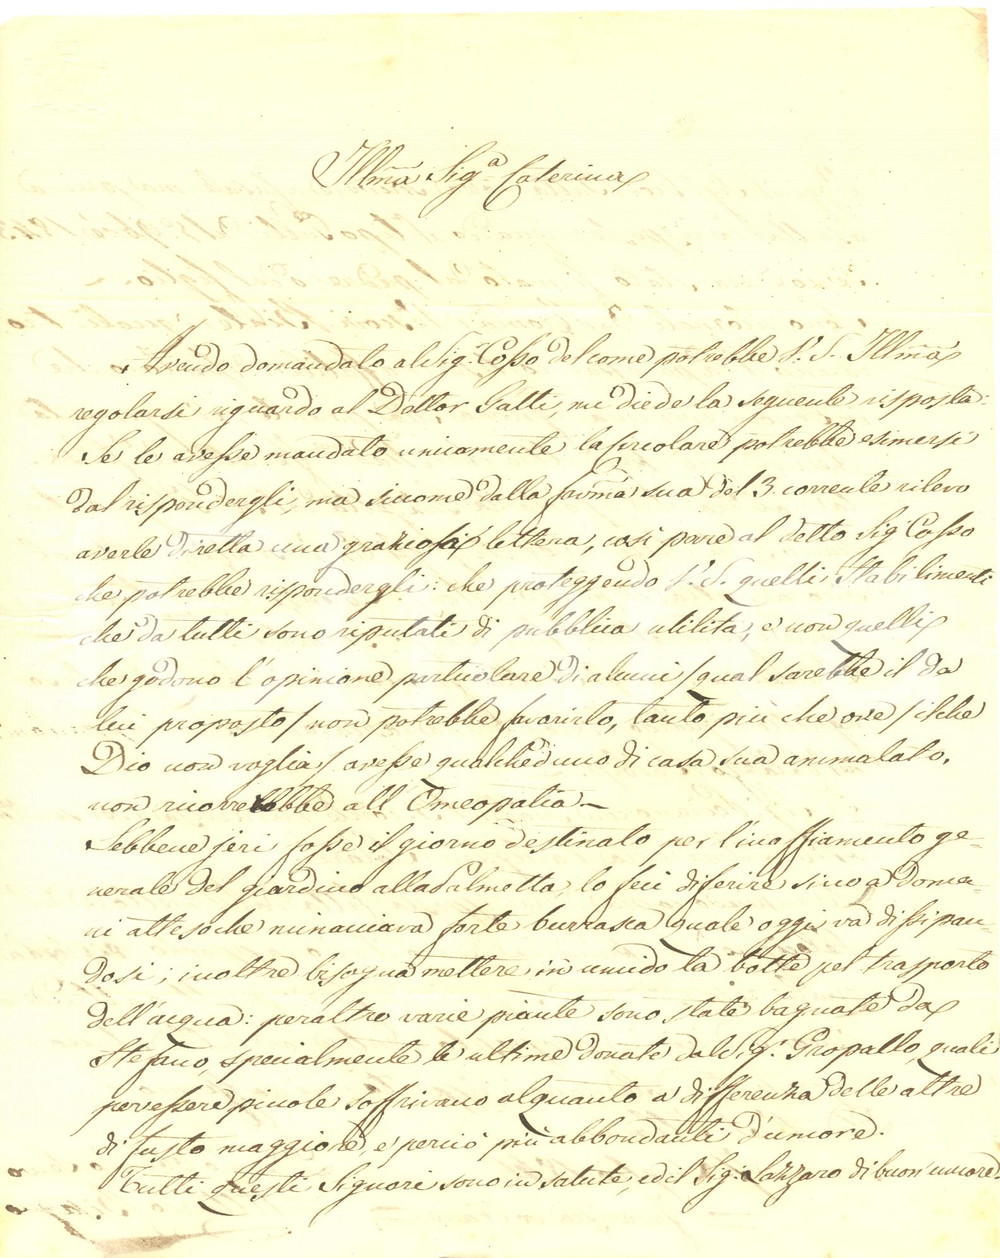 Illma Siga Caterina
Avendo domandato al Sig. Cosso del come potrebbe V. S. Illma
regolarsi riguardo al Dottor Gatti, mi diede la seguente risposta:
Se le avesse mandato unicamente la circolare potrebbe esimersi
dal rispondergli, ma siccome dalla favma sua del 3 corrente rilevo
averle diretta una graziosa lettera, così pare al detto Sig Cosso
che potrebbe rispondergli: che proteggendo V. S. quelli Stabilimenti
che da tutti sono riputati di pubblica utilità, e non quelli
che godono l'opinione particolare di alcuni / qual sarebbe il da
lui proposto / non potrebbe favorirlo, tanto più che ove / il che
Dio non voglia / avesse qualcheduno di casa sua ammalato,
non ricorrerebbe all'Omeopatia –
Sebbene jeri fosse il giorno destinato per l'inaffiamento ge-
nerale del giardino alla Palmetta, lo feci diferire sino a doma-
ni attesoche minacciava forte burrasca quale oggi va dissipan-
dosi; inoltre bisogna mettere in umido la botte pel trasporto
dell'acqua: peraltro varie piante sono state bagnate da
Stefano, specialmente le ultime donate dal Sigr Gropallo, quali
per essere picole soffrivano alquanto a differenza delle altre
di fusto maggiore, e perciò più abbondanti d'umore.
Tutti questi Signori sono in salute, ed il Sig. Lazzaro di buon umore.